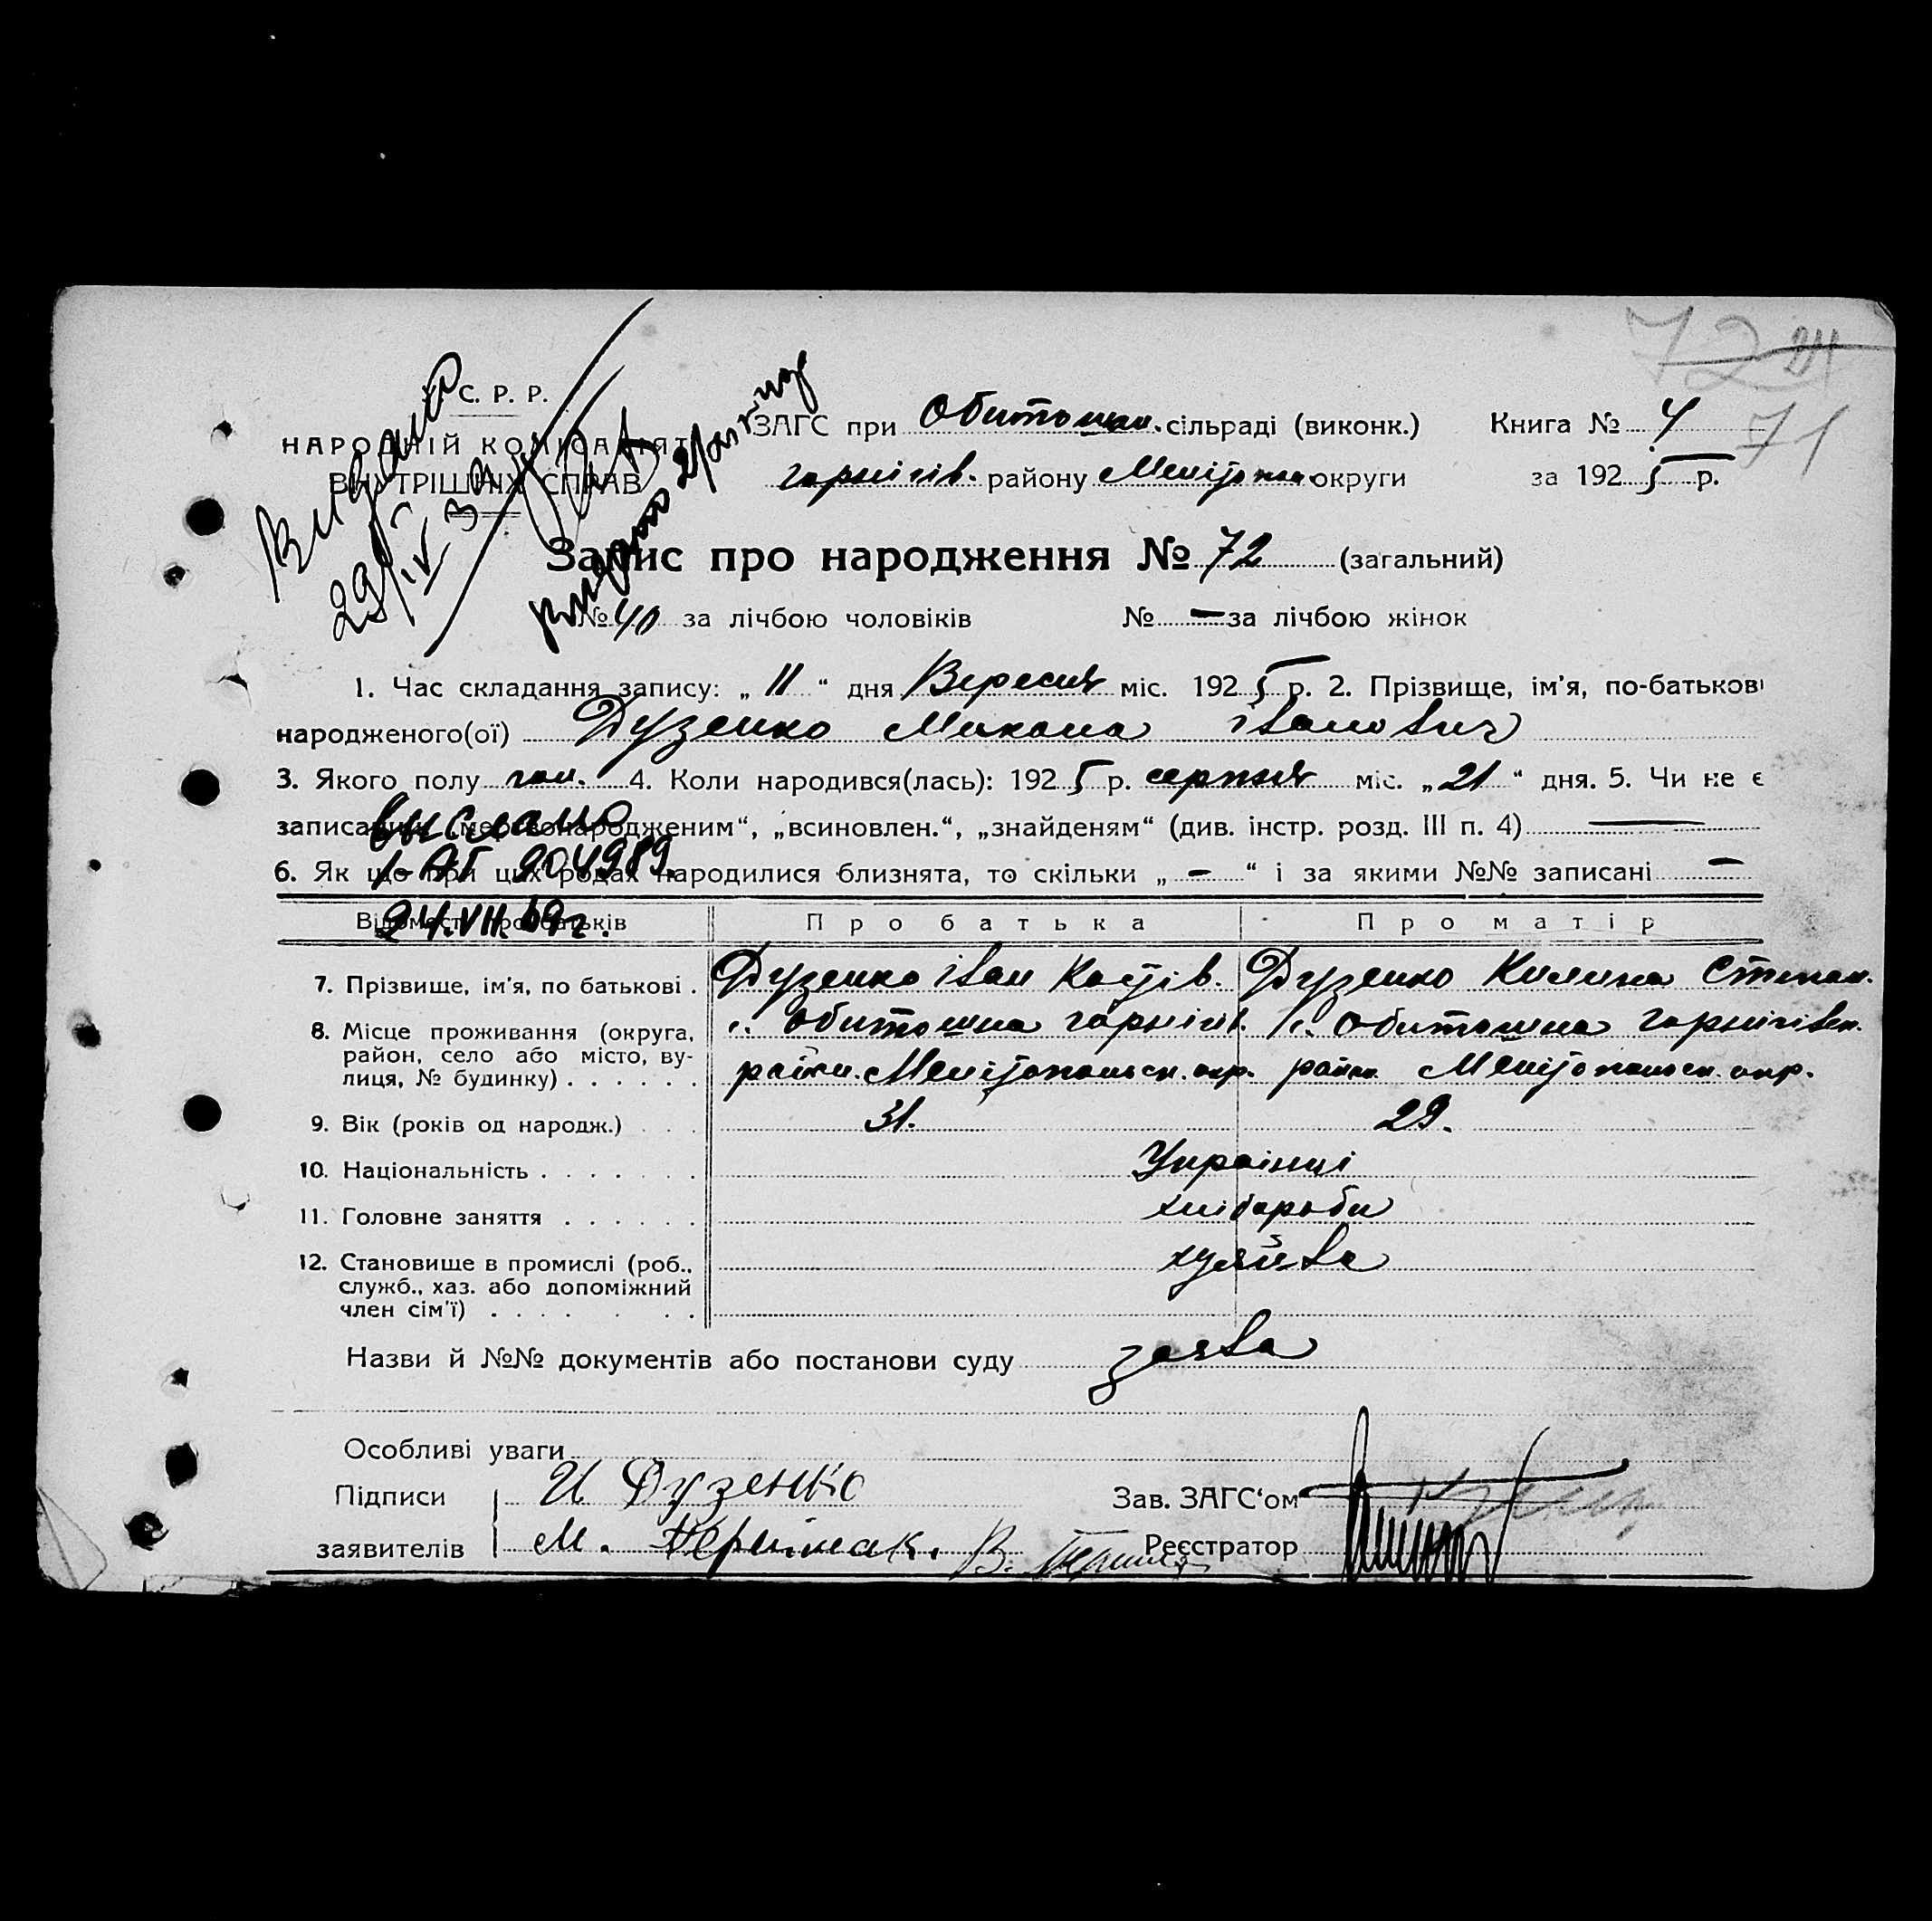 72 24
71
С. Р. Р.
НАРОДНІЙ КОМІСАРІЯТ
ВНУТРІШНІХ СПРАВ
Видано
29/IV
ЗАГС при Обитошн. сільраді (виконк.) Книга № 4
чорнігів. району Меліт округи за 1925 р.
Запис про народження № 72 (загальний)
№ 40 за лічбою чоловіків № — за лічбою жінок
1. Час складання запису: „ 11 “ дня Вересня міс. 1925 р. 2. Прізвище, ім’я, по-батькові
народженого(ої) Дузенко Микола іванович
3. Якого полу чол. 4. Коли народився(лась): 1925 р. серпня міс. „ 21 “ дня. 5. Чи не є
записаний „мертвонародженим“, „всиновлен.“, „знайденям“ (див. інстр. розд. III п. 4) —
выслано
6. Як що при цих родах народилися близнята, то скільки „ - “ і за якими №№ записані —
1-АГ 904989.
24.VII.69г.
Відомості про батьків Про батька Про матір
7. Прізвище, ім’я, по батькові . Дузенко іван Костів. Дузенко Килина Степан.
8. Місце проживання (округа, с. Обитошна чорнігів. с. Обитошна чорнігівськ.
район, село або місто, ву-
лиця, № будинку) . . . . . . район. Мелітопольськ. окр. район Мелітопольськ. окр.
9. Вік (років од народж.) . . . 31. 29.
10. Національність . . . . . . . Українці
11. Головне заняття . . . . . . хліборобы
12. Становище в промислі (роб.,
служб., хаз. або допоміжний
член сім’ї) . . . .
Назви й №№ документів або постанови суду заява
Особливі уваги
Підписи И Дузенко Зав. ЗАГС‘ом
заявителів М. Реєстратор